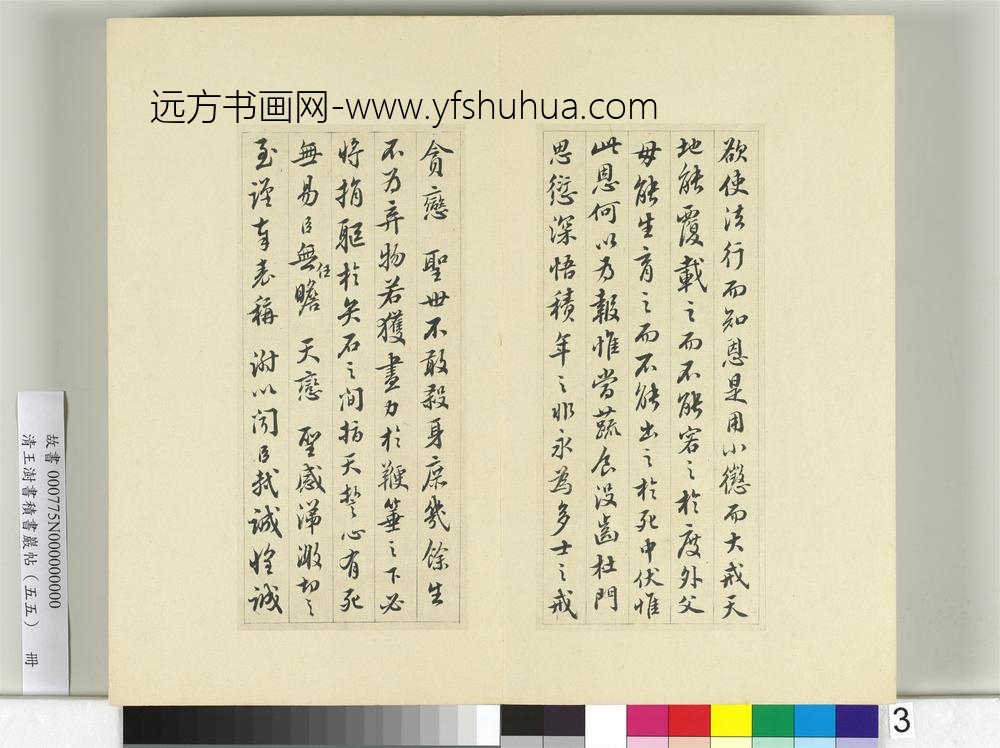 远方书画网-www.yfshuhua.com
欲使法行而知恩是用小懲而大戒天
地能覆載之而不能容之於度外父
母能生育之而不能出之於死中伏惟
此恩何以為報惟當蔬食没齒杜門
思愆深悟積年之非永為多士之戒
貪戀 聖世不敢殺身庶幾餘生
不為弃物若獲盡力於鞭箠之下必
將捐軀於矢石之間指天誓心有死
無易臣無任瞻 天戀 聖感涕激切之
至謹奉表稱 謝以聞臣軾誠惶誠
故書 000775N000000000
清王澍書積書巖帖（五五） 冊
3